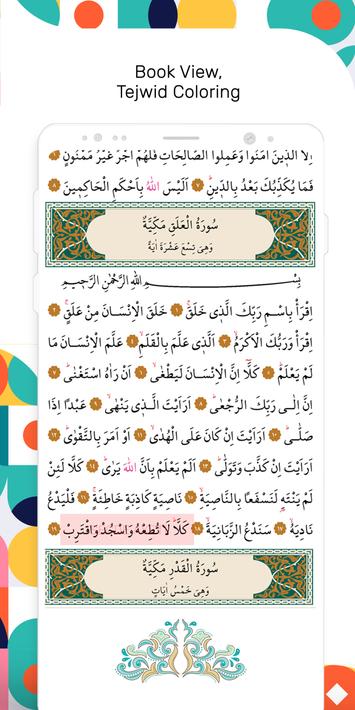 Book View,
Tejwid Coloring
اِلَّا الَّذ۪ينَ اٰمَنُوا وَعَمِلُوا الصَّالِحَاتِ فَلَهُمْ اَجْرٌ غَيْرُ مَمْنُونٍۜ ٦
فَمَا يُكَذِّبُكَ بَعْدُ بِالدّ۪ينِۜ ٧ اَلَيْسَ اللّٰهُ بِاَحْكَمِ الْحَاكِم۪ينَ ٨
سُورَةُ الْعَلَقِ مَكِّيَّةٌ
وَهِىَ تِسْعَ عَشْرَةَ اٰيَةً
بِسْــــمِ اللّٰهِ الرَّحْمٰنِ الرَّح۪يمِ
اِقْرَأْ بِاسْمِ رَبِّكَ الَّذ۪ى خَلَقَۚ ١ خَلَقَ الْاِنْسَانَ مِنْ عَلَقٍۚ ٢
اِقْرَأْ وَرَبُّكَ الْاَكْرَمُۙ ٣ اَلَّذ۪ى عَلَّمَ بِالْقَلَمِۙ ٤ عَلَّمَ الْاِنْسَانَ مَا
لَمْ يَعْلَمْۜ ٥ كَلَّٓا اِنَّ الْاِنْسَانَ لَيَطْغٰىۙ ٦ اَنْ رَاٰهُ اسْتَغْنٰىۜ ٧
اِنَّ اِلٰى رَبِّكَ الرُّجْعٰىۜ ٨ اَرَاَيْتَ الَّذ۪ى يَنْهٰىۙ ٩ عَبْدًا اِذَا
صَلّٰىۜ ١٠ اَرَاَيْتَ اِنْ كَانَ عَلَى الْهُدٰىۙ ١١ اَوْ اَمَرَ بِالتَّقْوٰىۜ ١٢
اَرَاَيْتَ اِنْ كَذَّبَ وَتَوَلّٰىۜ ١٣ اَلَمْ يَعْلَمْ بِاَنَّ اللّٰهَ يَرٰىۜ ١٤ كَلَّا لَئِنْ
لَمْ يَنْتَهِ لَنَسْفَعًا بِالنَّاصِيَةِۙ ١٥ نَاصِيَةٍ كَاذِبَةٍ خَاطِئَةٍۚ ١٦ فَلْيَدْعُ
نَادِيَهُۙ ١٧ سَنَدْعُ الزَّبَانِيَةَۙ ١٨ كَلَّاۜ لَا تُطِعْهُ وَاسْجُدْ وَاقْتَرِبْ ١٩
سُورَةُ الْقَدْرِ مَكِّيَّةٌ
وَهِىَ خَمْسُ اٰيَاتٍ